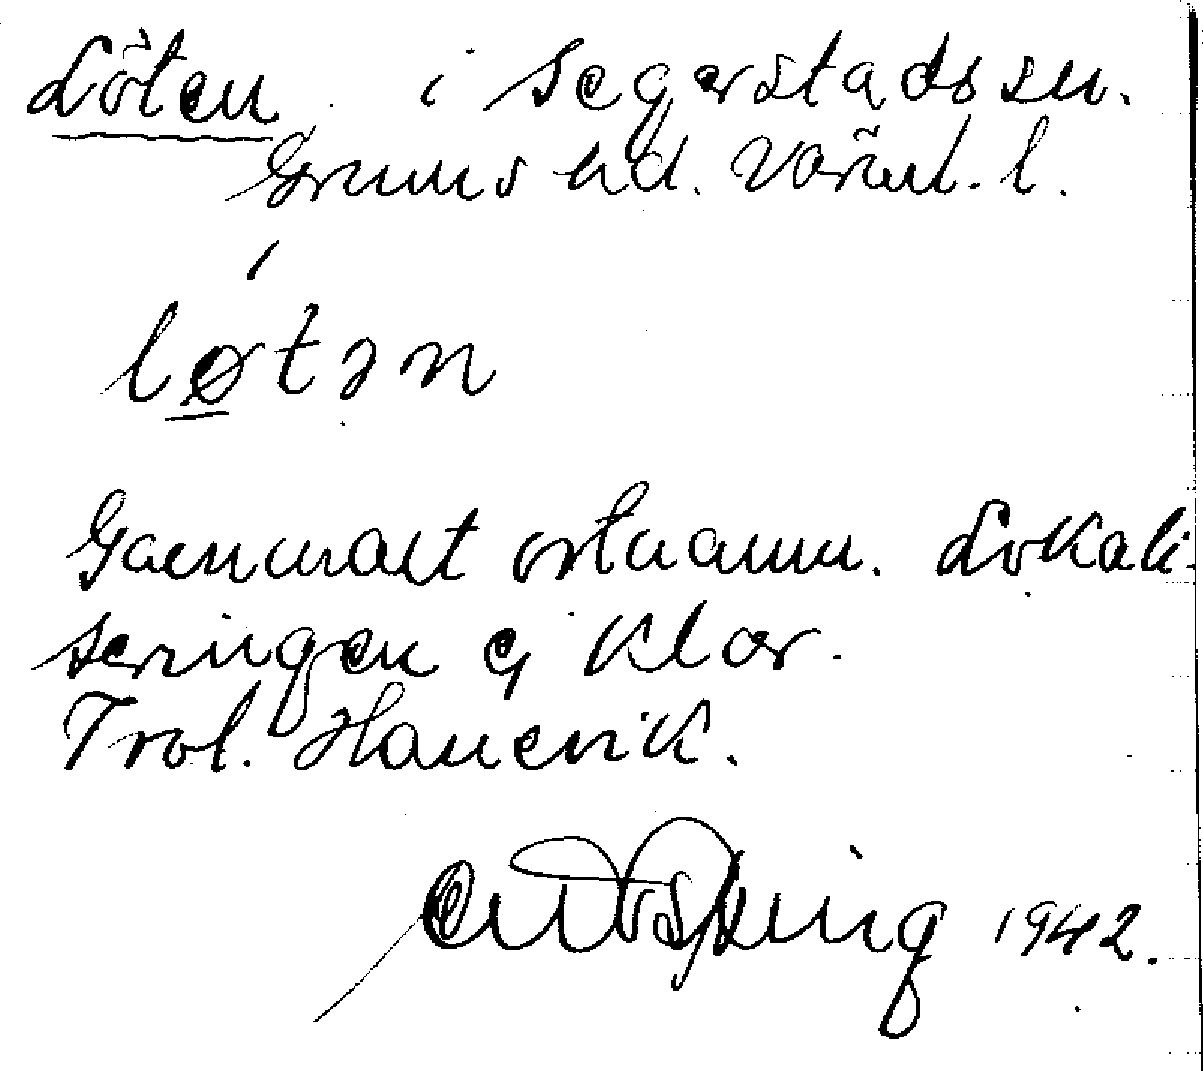 Löten i Segerstads sn.
Grums hd. Värml. l.
løtən
Gammalt ortnamn. Lokali-
seringen ej klar.
Trol. Hanevik.
1942.